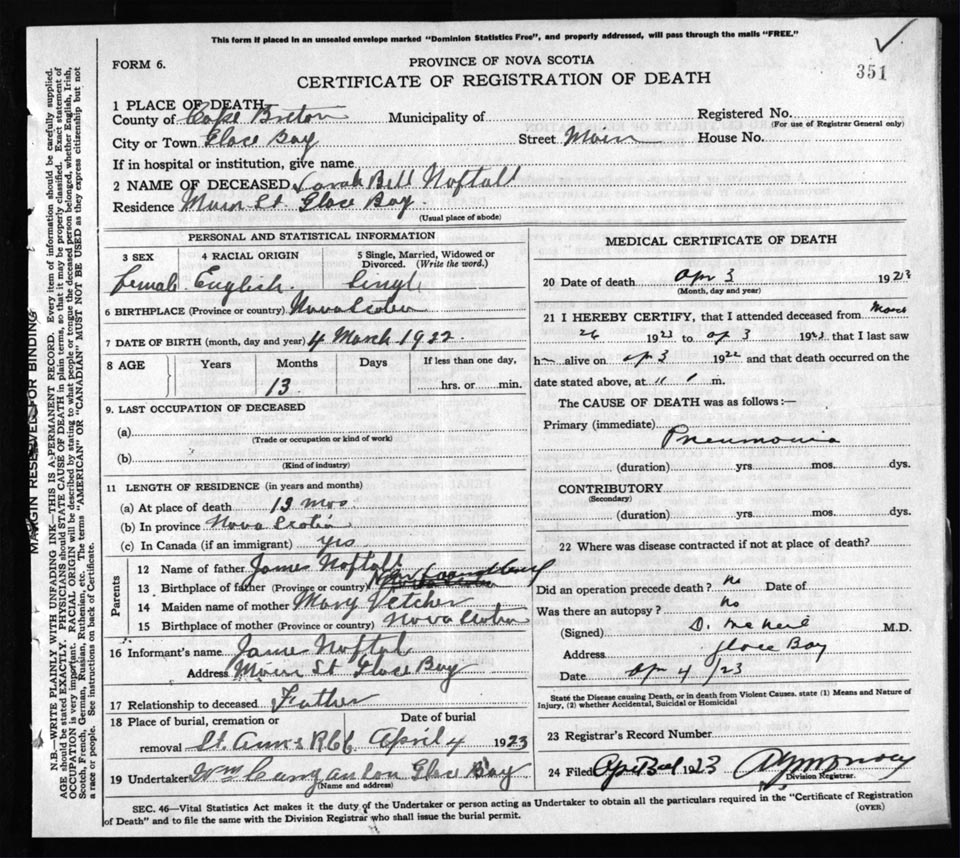 This form if placed in an unsealed envelope marked "Dominion Statistics Free", and properly addressed, will pass through the mails "FREE."
FORM 6.
PROVINCE OF NOVA SCOTIA
351
CERTIFICATE OF REGISTRATION OF DEATH
1 PLACE OF DEATH
County of Cape Breton Municipality of Registered No.
(For use of Registrar General only)
City or Town Glace Bay Street Main House No.
If in hospital or institution, give name
2 NAME OF DECEASED Sarah Bell Noftall
Residence Main St Glace Bay.
(Usual place of abode)
PERSONAL AND STATISTICAL INFORMATION
3 SEX 4 RACIAL ORIGIN 5 Single, Married, Widowed or Divorced. (Write the word.)
Female English Single
6 BIRTHPLACE (Province or country) Nova Scotia
7 DATE OF BIRTH (month, day and year) 4 March 1922
8 AGE Years Months Days If less than one day,
13 hrs. or min.
9. LAST OCCUPATION OF DECEASED
(a)
(Trade or occupation or kind of work)
(b)
(Kind of industry)
11 LENGTH OF RESIDENCE (in years and months)
(a) At place of death 13 mos
(b) In province Nova Scotia
(c) In Canada (if an immigrant) yrs
Parents
12 Name of father James Noftall
13 Birthplace of father (Province or country)
14 Maiden name of mother Mary Vetcher
15 Birthplace of mother (Province or country) Nova Scotia
16 Informant's name James Noftal
Address Main St Glace Bay
17 Relationship to deceased Father
18 Place of burial, cremation or removal Date of burial
St. Anns April 4 1923
19 Undertaker Wm Glace Bay
(Name and address)
MEDICAL CERTIFICATE OF DEATH
20 Date of death Apr 3 1923
(Month, day and year)
21 I HEREBY CERTIFY, that I attended deceased from
26 1923 to Ap 3 1923 that I last saw
h alive on Ap 3 192 and that death occurred on the
date stated above, at 11 m.
The CAUSE OF DEATH was as follows:—
Primary (immediate)
Pneumonia
(duration) yrs. mos. dys.
CONTRIBUTORY
(Secondary)
(duration) yrs. mos. dys.
22 Where was disease contracted if not at place of death?
Did an operation precede death? No Date of
Was there an autopsy? No
(Signed) D. McNeil M.D.
Address Glace Bay
Date Ap 4 /23
State the Disease causing Death, or in death from Violent Causes, state (1) Means and Nature of Injury, (2) whether Accidental, Suicidal or Homicidal
23 Registrar's Record Number
24 Filed 1923
Division Registrar.
SEC. 46—Vital Statistics Act makes it the duty of the Undertaker or person acting as Undertaker to obtain all the particulars required in the "Certificate of Registration
of Death" and to file the same with the Division Registrar who shall issue the burial permit.
(OVER)
MARGIN RESERVED FOR BINDING
N.B.—WRITE PLAINLY WITH UNFADING INK—THIS IS A PERMANENT RECORD. Every item of information should be carefully supplied.
AGE should be stated EXACTLY. PHYSICIANS should STATE CAUSE OF DEATH in plain terms, so that it may be properly classified. Exact statement of
OCCUPATION is very important. RACIAL ORIGIN will be described by stating to what people or tongue the deceased person belonged, whether English, Irish,
Scotch, French, German, Russian, Ruthenian, etc. The terms "AMERICAN" OR "CANADIAN" MUST NOT BE USED as they express citizenship but not
a race or people. See instructions on back of Certificate.